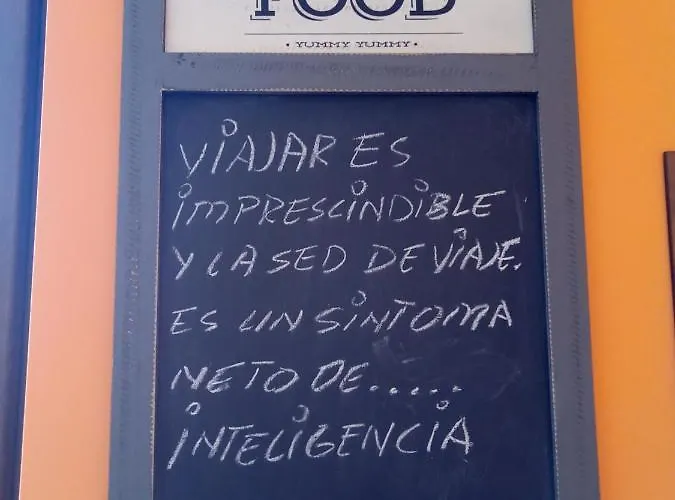 FOOD
• YUMMY YUMMY •
VIAJAR ES
IMPRESCINDIBLE
Y LA SED DE VIAJE.
ES UN SINTOMA
NETO DE.....
INTELIGENCIA